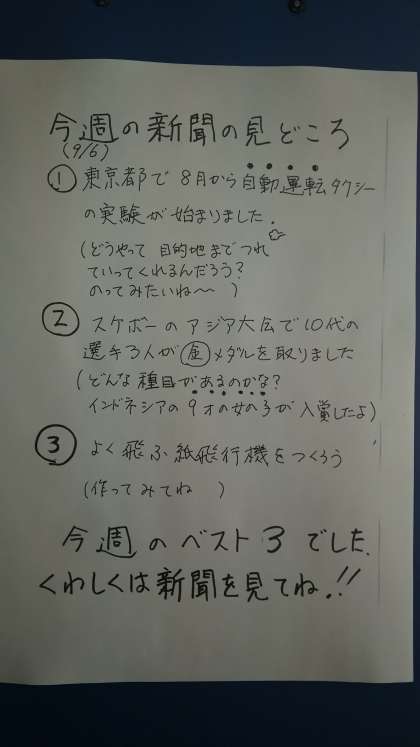 今週の新聞の見どころ
(9/6)
① 東京都で8月から自動運転タクシー
の実験が始まりました.
(どうやって目的地までつれ
ていってくれるんだろう?
のってみたいね〜 )
② スケボーのアジア大会で10代の
選手3人が メダルを取りました
(どんな種目があるのかな?
インドネシアの9才の女の子が入賞したよ)
③ よく飛ぶ紙飛行機をつくろう
(作ってみてね )
今週のベスト3でした.
くわしくは新聞を見てね.!!